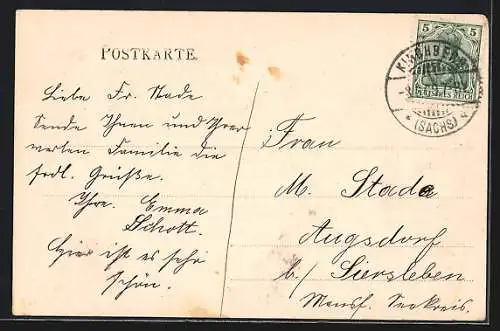 POSTKARTE.
Liebe Fr. Stade
Sende Ihnen und Ihrer
werten Familie die
frdl. Grüße.
Ihre Emma
Schott.
Hier ist es sehr
schön.
5
KIRCHBERG
DEUTSCHES REICH
* (SACHS)
Frau
M. Stade
Augsdorf
b/ Siersleben
Mansf. Seekreis.